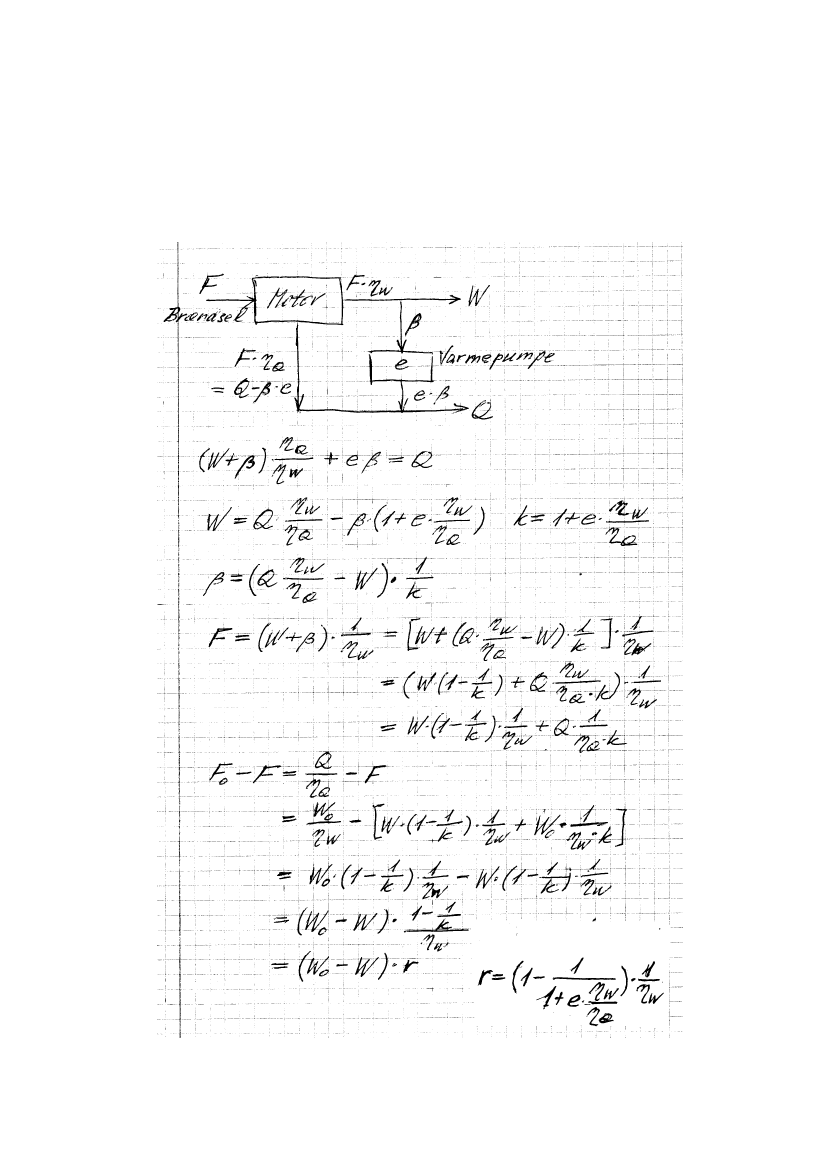 F Motor F·η_W W
Brændsel β
F·η_Q e Varmepumpe
= Q-β·e e·β Q
(W+β) η_Q/η_W + e β = Q
W = Q · η_W/η_Q - β·(1+e·η_W/η_Q) k = 1+e·η_W/η_Q
β = (Q η_W/η_Q - W)·1/k
F = (W+β)·1/η_W = [W+(Q·η_W/η_Q - W)·1/k]·1/η_W
= (W(1-1/k) + Q η_W/(η_Q·k))·1/η_W
= W·(1-1/k)·1/η_W + Q·1/(η_Q·k)
F₀ - F = Q/η_Q - F
= W₀/η_W - [W·(1-1/k)·1/η_W + W₀·1/(η_W·k)]
= W₀·(1-1/k)·1/η_W - W·(1-1/k)·1/η_W
= (W₀ - W)·(1-1/k)/η_W
= (W₀ - W)·r r = (1 - 1/(1+e·η_W/η_Q))·1/η_W